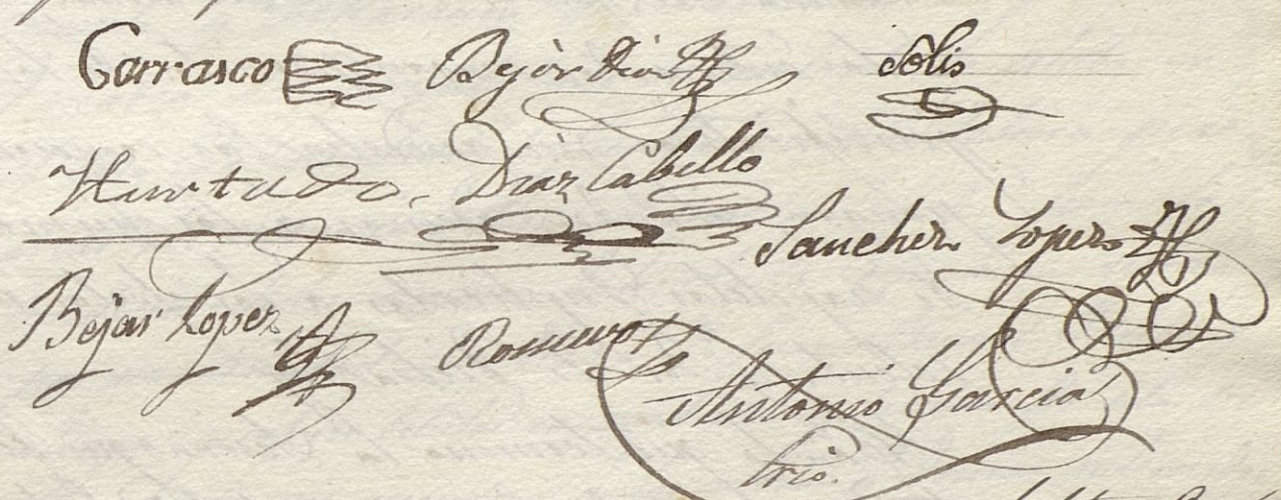 Carrasco Bejar Diaz Solis
Hurtado. Diaz Cabello
Sanchez Lopez
Bejar Lopez Romero
Antonio Garcia
Srio.